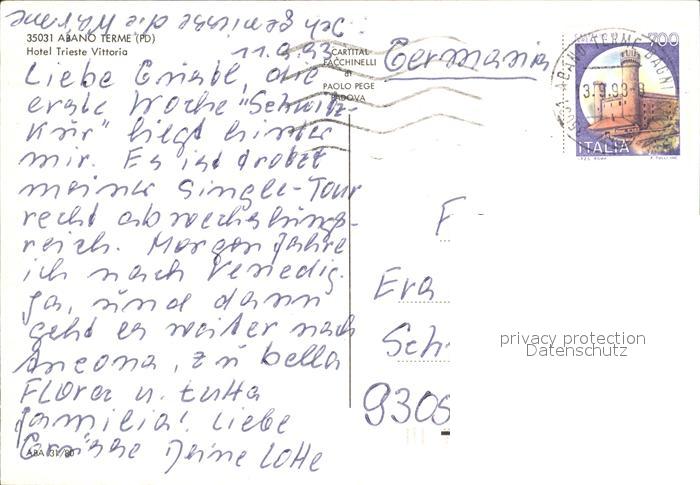 Ich genieße die Wärme
35031 ABANO TERME (PD)
Hotel Trieste Vittoria
11.9.93
CARTITAL
FACCHINELLI
di
PAOLO PEGE
PADOVA
Germania
700
ABANO TERME
13.9.93-8
ITALIA
I.P.Z.S. ROMA
Liebe Gristl, die
erste Woche "Schwitz-
Kur" liegt hinter
mir. Es ist trotz
meiner Single-Tour
recht abwechslungs-
reich. Morgen fahre
ich nach Venedig.
Ja, und dann
geht es weiter nach
Ancona, zu bella
Flora u. tutta
familia! Liebe
Grüsse Deine Lotte
F
Era
Sch
9305
privacy protection
Datenschutz
ABA 31/80